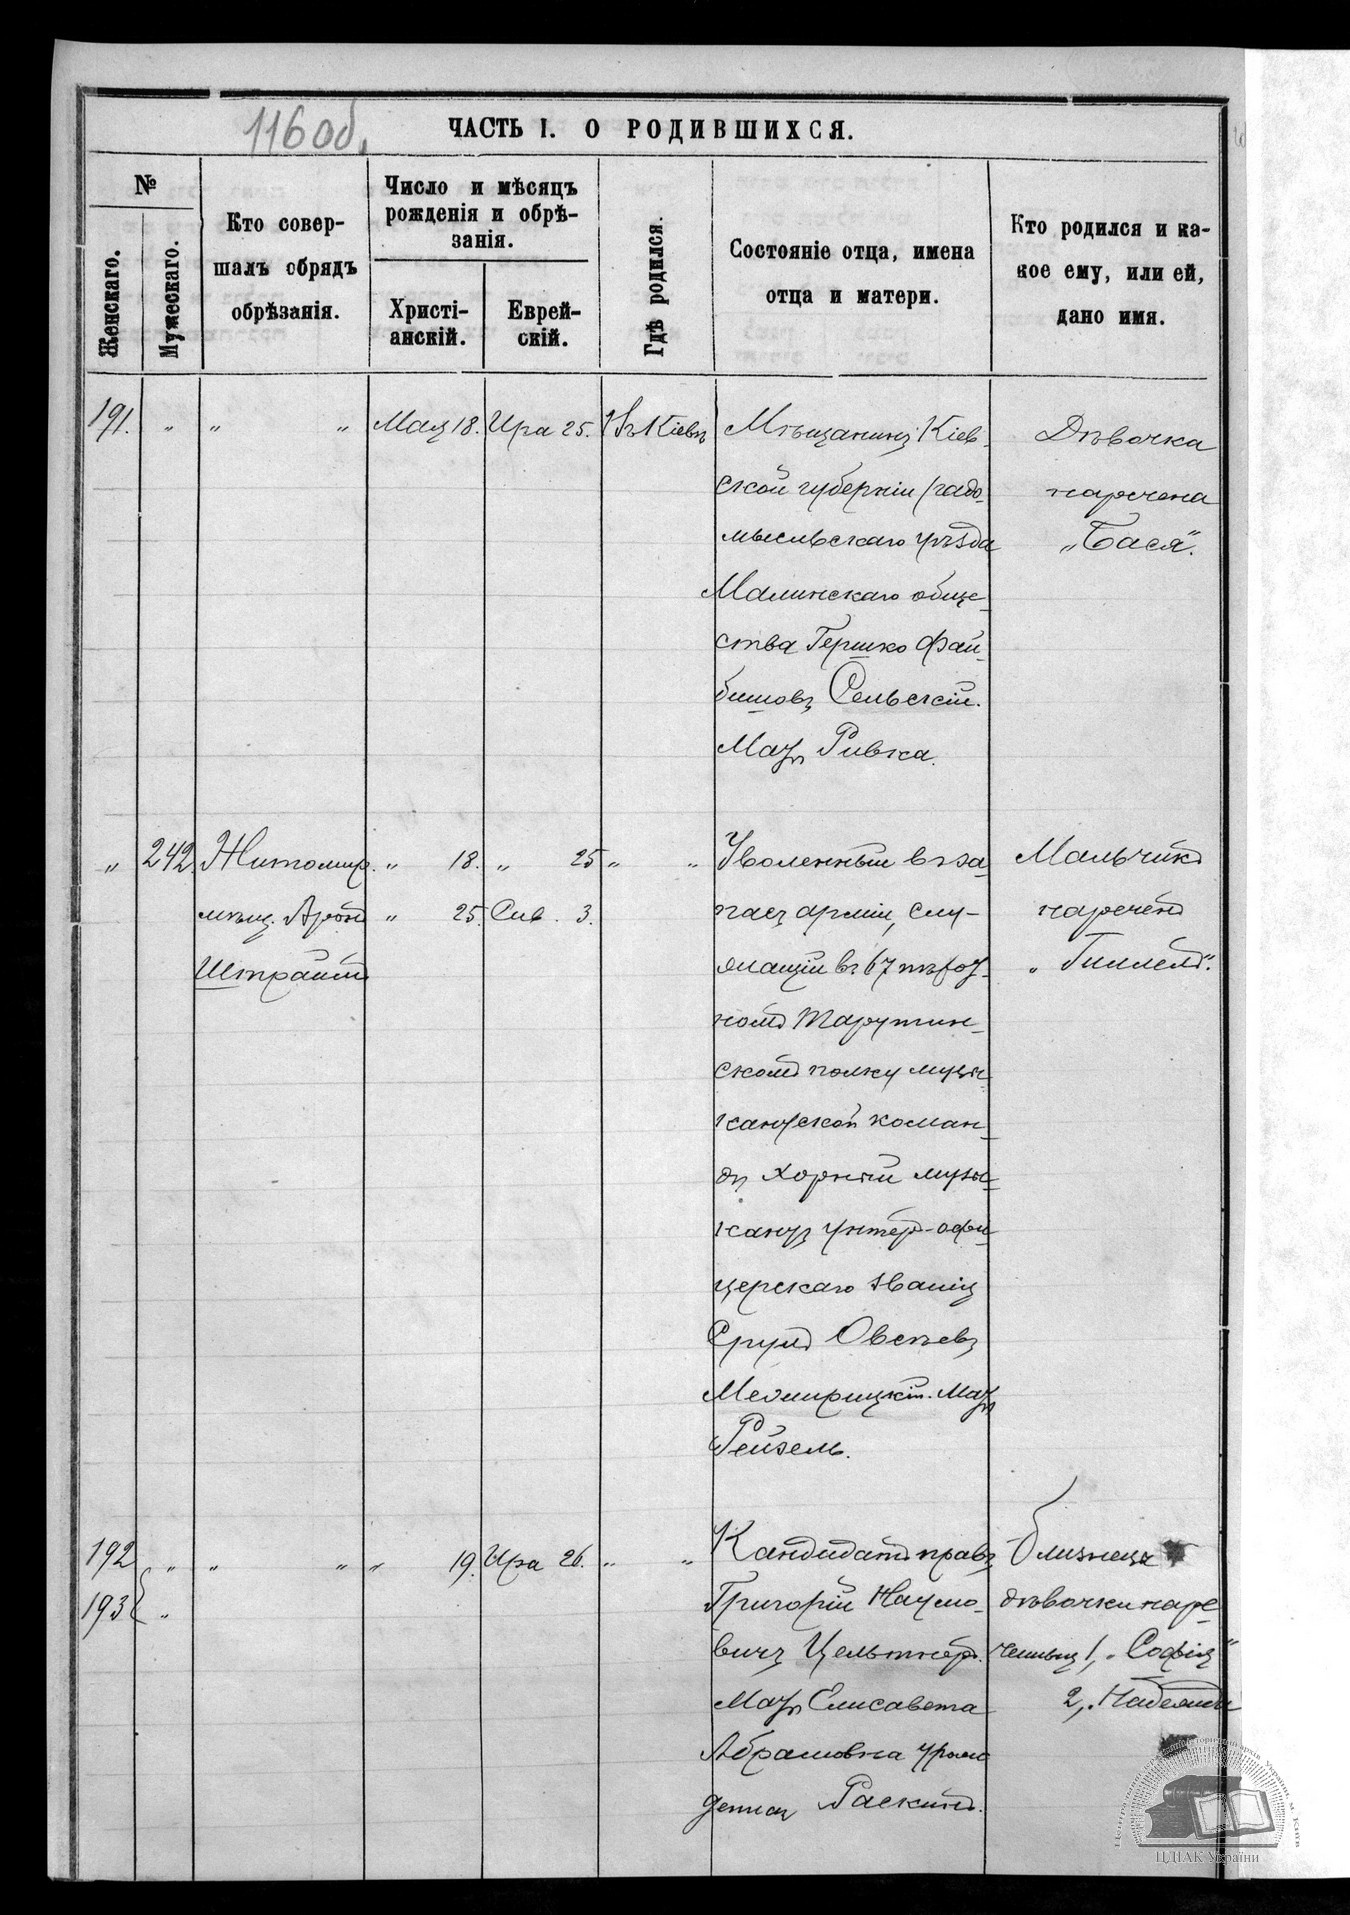 116 об.
ЧАСТЬ I. О РОДИВШИХСЯ.
№
Женскаго.
Мужескаго.
Кто совер-
шалъ обрядъ
обрѣзанія.
Число и мѣсяцъ
рожденія и обрѣ-
занія.
Христі-
анскій.
Еврей-
скій.
Гдѣ родился.
Состояніе отца, имена
отца и матери.
Кто родился и ка-
кое ему, или ей,
дано имя.
191. " " " Мая 18. Ира 25. Въ Кіевѣ
Мѣщанинъ Кіев-
ской губерніи Радо-
мысльскаго уѣзда
Малинскаго обще-
ства Гершко Фай-
бишовъ Сельскій.
Мать Ривка.
Дѣвочка
наречена
"Бася".
" 242. Житомир. " 18. " 25 " "
мѣщ. Аронъ " 25. Сив. 3.
Штраймъ
Уволенный въ за-
пасъ арміи, слу-
жащій въ 67 пѣхот-
номъ Тарутин-
скомъ полку музы-
кантской коман-
ды хорный музы-
кантъ унтеръ-офи-
церскаго званія
Сруль Овсѣевъ
Межирицкій. Мать
Рейзель.
Мальчикъ
нареченъ
"Гиллель".
192 " " " " 19. Ира 26. " "
193 "
Кандидатъ правъ
Григорій Наумо-
вичъ Цельтнеръ.
Мать Елисавета
Абрамовна урож-
денная Раскинъ.
близнецы
дѣвочки наре-
ченныя 1, "Софія"
2, "Надежда
ЦДІАК України